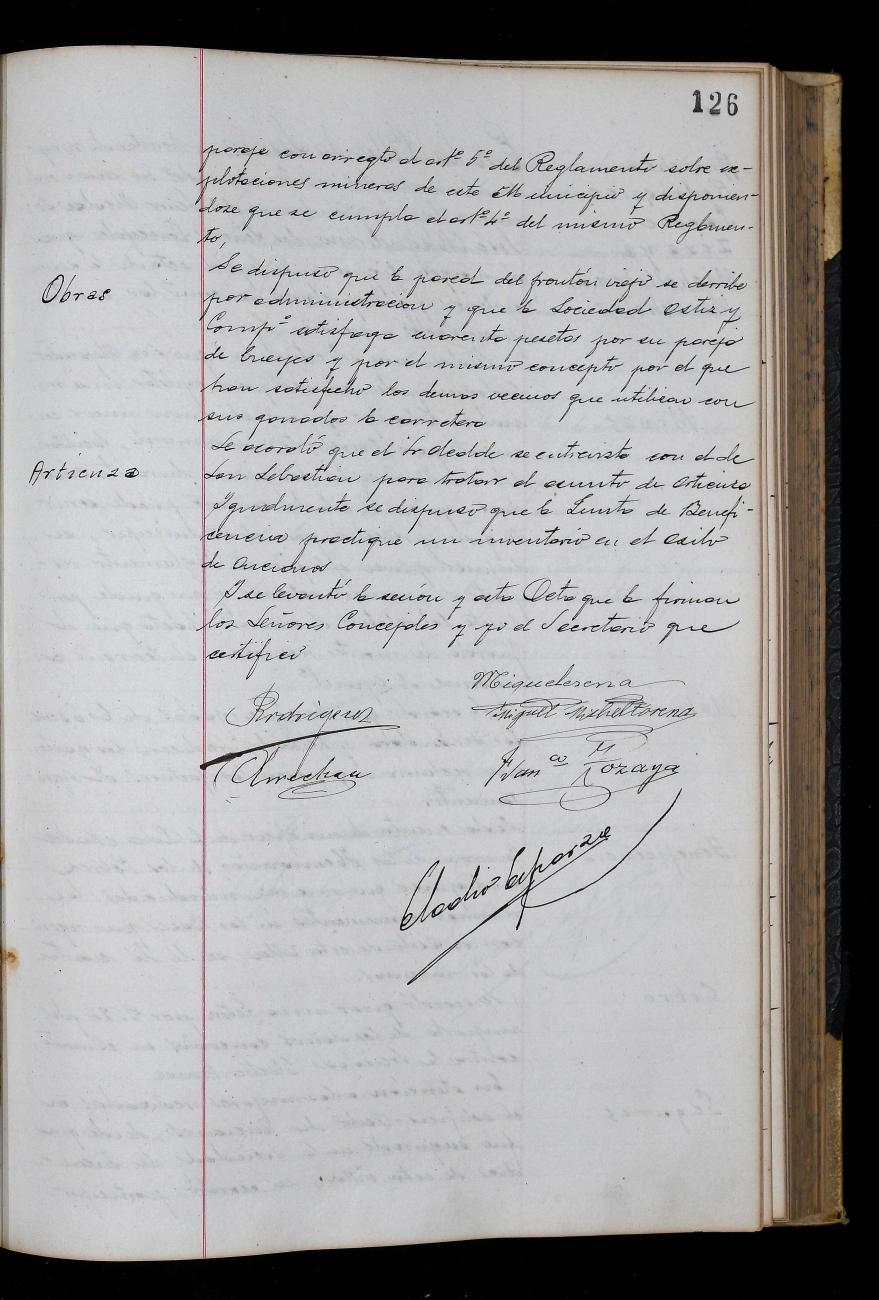 126
paraje con arreglo al artº 5º del Reglamento sobre ex-
plotaciones mineras de este Municipio y disponien-
dose que se cumpla el artº 4º del mismo Reglamen-
to,
Obras
Se dispuso que la pared del frontón viejo se derribe
por administracion y que la Sociedad Ostiz y
Compª satisfaga cuarenta pesetas por su pareja
de bueyes y por el mismo concepto por el que
han satisfecho los demas vecinos que utilizan con
sus ganados la carretera
Artienza
Se acordó que el Sr Alcalde se entreviste con el de
San Sebastian para tratar el asunto de Artienza
Igualmente se dispuso que la Junta de Benefi-
cencia practique un inventario en el asilo
de ancianos
Y se levantó la sesión y esta Acta que la firman
los Señores Concejales y yo el Secretario que
certifico
Miquelerena
Rodriguez
Miguel Micheltorena
Arrechea
Franco Tozaya
Eladio Esparza